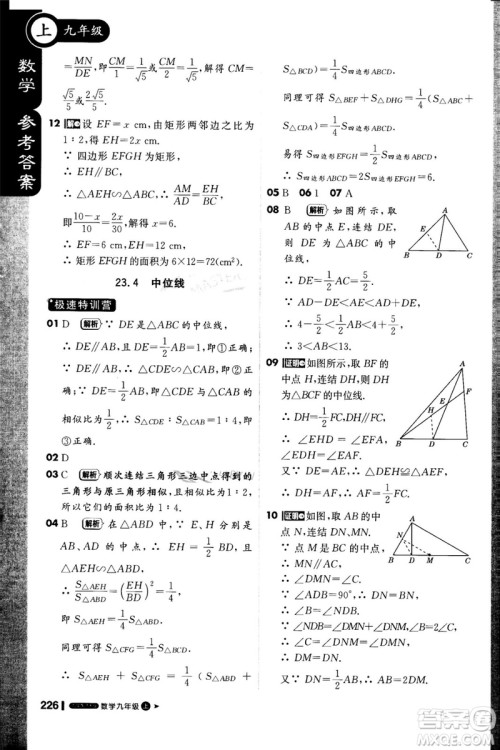 上 九年级
数学 参考答案
=MN/DE，即CM/1=1/√5或CM/2=1/√5，解得CM=
√5/5或2√5/5.
12 解 设EF=x cm，由矩形两邻边之比为
1∶2，得EH=2x cm.
∵ 四边形EFGH为矩形，
∴ EH∥BC，∴ △AEH∽△ABC.
∵ AD⊥BC，∴ AM/AD=EH/BC，
即(10-x)/10=2x/30，解得x=6.
∴ EF=6 cm，EH=12 cm，
∴ 矩形EFGH的面积为6×12=72(cm²).
23.4 中位线
极速特训营
01 D 解析 ∵ DE是△ABC的中位线，
∴ DE∥AB，DE=1/2AB=1，即①正确；
∵ DE∥AB，DE=1/2AB，
∴ △CDE∽△CAB，即②正确；
∵ DE=1/2AB，△CDE∽△CAB，
∴ S△CDE∶S△CAB=1∶4，即③正确.
02 D
03 C 解析 顺次连结三角形三边中点得到的
三角形与原三角形相似，且相似比为1/2.
04 B 解析 在△ABD中，∵ EH=1/2BD，EH
∥BD，∴ △AEH∽△ABD.
∴ S△AEH/S△ABD=(EH/BD)²=1/4，
即S△AEH=1/4S△ABD.
同理可得S△CFG=1/4S△CBD，
∴ S△AEH+S△CFG=1/4(S△ABD+
S△CBD)=1/4S四边形ABCD.
同理可得S△BEF+S△DHG=1/4(S四边形ABCD)
=1/4S四边形ABCD.
易得S四边形EFGH=1/2S四边形ABCD，
05 B 06 1 07 A
08 B 解析 如图所示，取
AB的中点E，连结DE，
∵ AD为BC边上的中
线，∴ DE=1/2AC=5/2，
AE=1/2AB=4，
∴ AE-DE<AD<AE+DE，
即4-5/2<1/2AB<4+5/2，
∴ 3<AB<13.
09 证明 如图所示，取BF的
中点H，连结DH，则DH
为△BCF的中位线.
∴ DH=1/2FC，DH∥FC，
∴ ∠EHD=∠EFA，
∠HDE=∠FAE.
又∵ AE=DE，
∴ △AEF≌△DEH，
∴ AF=DH，
∴ AF=1/2FC.
10 证明 如图，取AB的中
点N，连结DN，NM.
∵ 点M是BC的中点，
∴ NM∥AC.
∴ ∠DMN=∠C.
∵ ∠BDA=90°，DN=1/2AB=BN，
∴ ∠NDB=∠B.
∵ ∠NDB=∠DMN+∠DNM，
∴ ∠B=∠DMN+∠DNM.
226 数学九年级 上